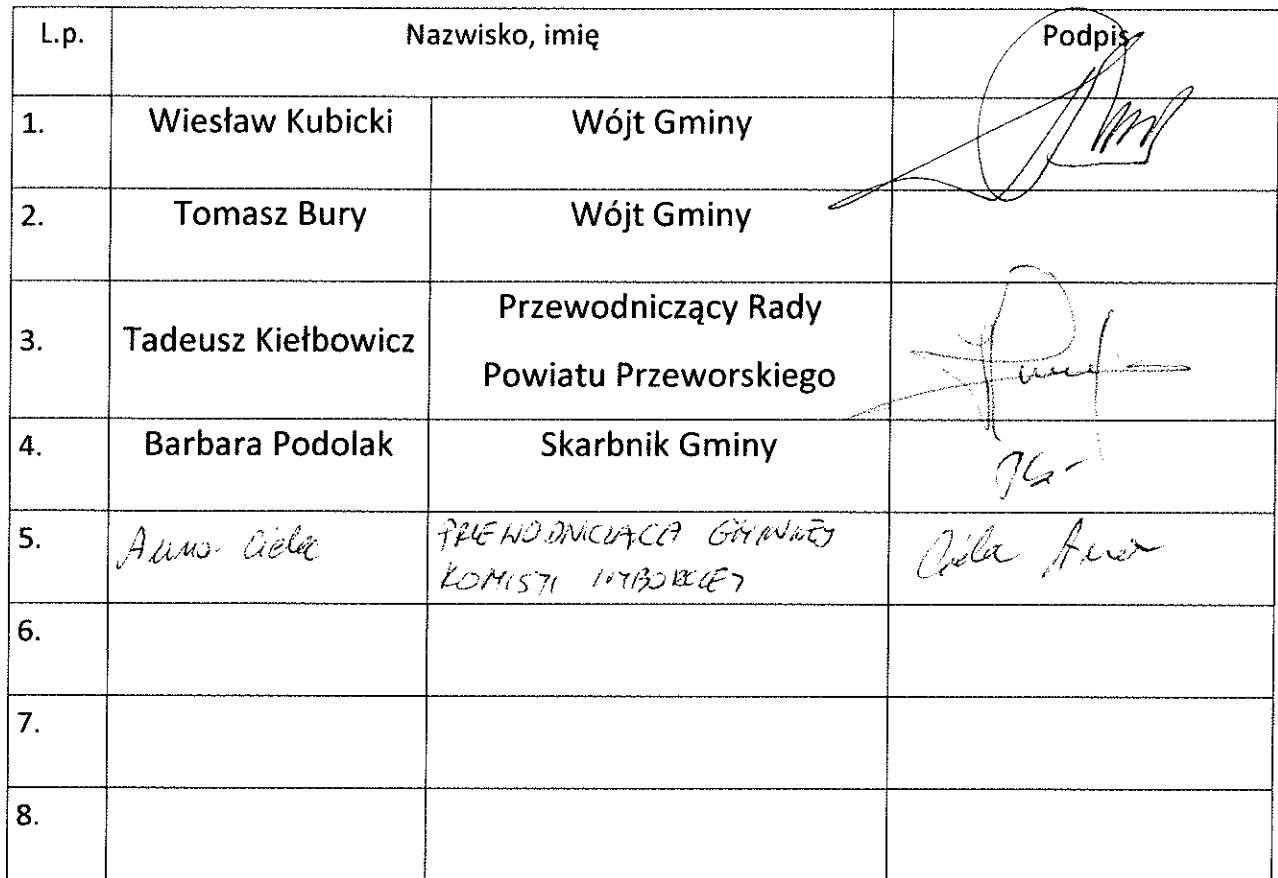 L.p. Nazwisko, imię Podpis
1. Wiesław Kubicki Wójt Gminy
2. Tomasz Bury Wójt Gminy
3. Tadeusz Kiełbowicz Przewodniczący Rady
Powiatu Przeworskiego
4. Barbara Podolak Skarbnik Gminy
5. Anna GMINNEJ
KOMISJI
6.
7.
8.